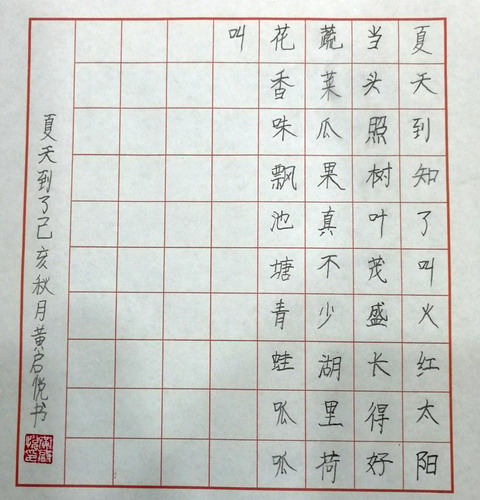 夏天到知了叫火红太阳
当头照树叶茂盛长得好
蔬菜瓜果真不少湖里荷
花香味飘池塘青蛙呱呱
叫
夏天到了己亥秋月黄启悦书